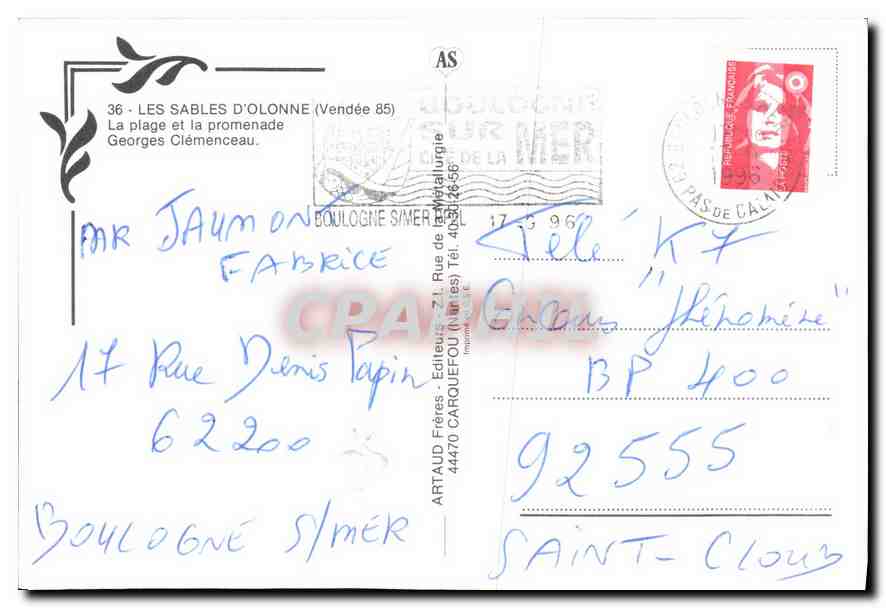 AS
36 - LES SABLES D'OLONNE (Vendée 85)
La plage et la promenade
Georges Clémenceau.
BOULOGNE
SUR MER
DE LA
BOULOGNE S/MER PPAL 17 96
62 BOULOGNE
PAS DE CALAIS
1996
RÉPUBLIQUE FRANÇAISE
LA POSTE
MR JAUMONT
FABRICE
17 Rue Denis Papin
62200
BOULOGNE S/MER
ARTAUD Frères - Editeurs - Z.I. Rue de la Métallurgie
44470 CARQUEFOU (Nantes) Tél. 40-30-26-56
Imprimé en C.E.E.
Télé K7
Concours "Phénomène"
BP 400
92555
SAINT-CLOUD